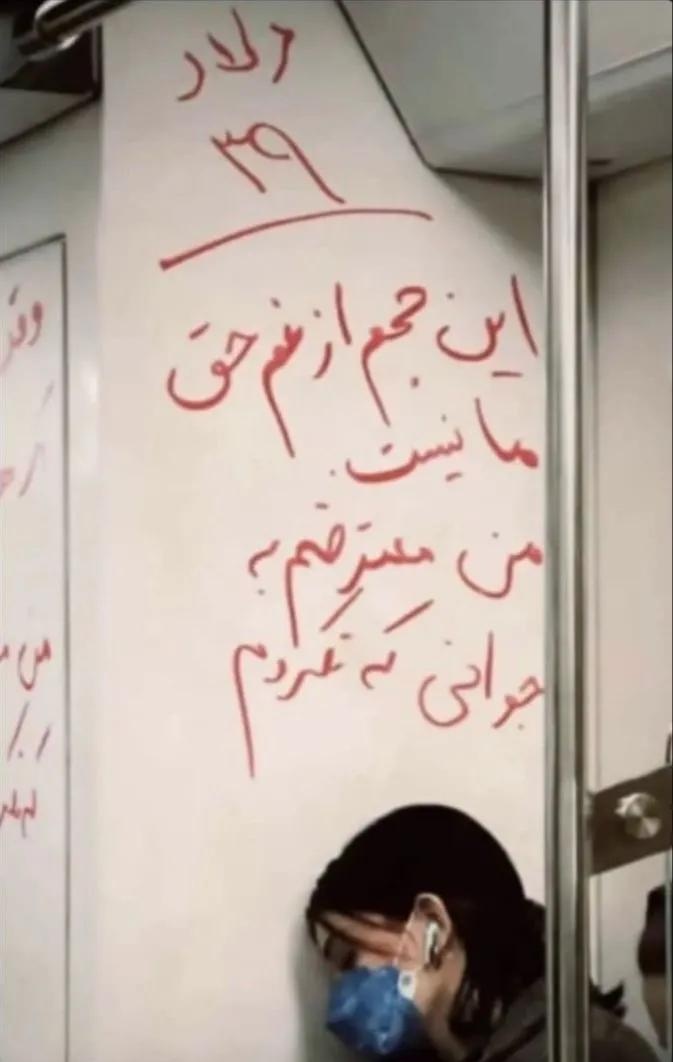 دلار
۳۹
این حجم از غم حق
ما نیست.
من معترضم به
جوانی که نکردم
وقد
من م